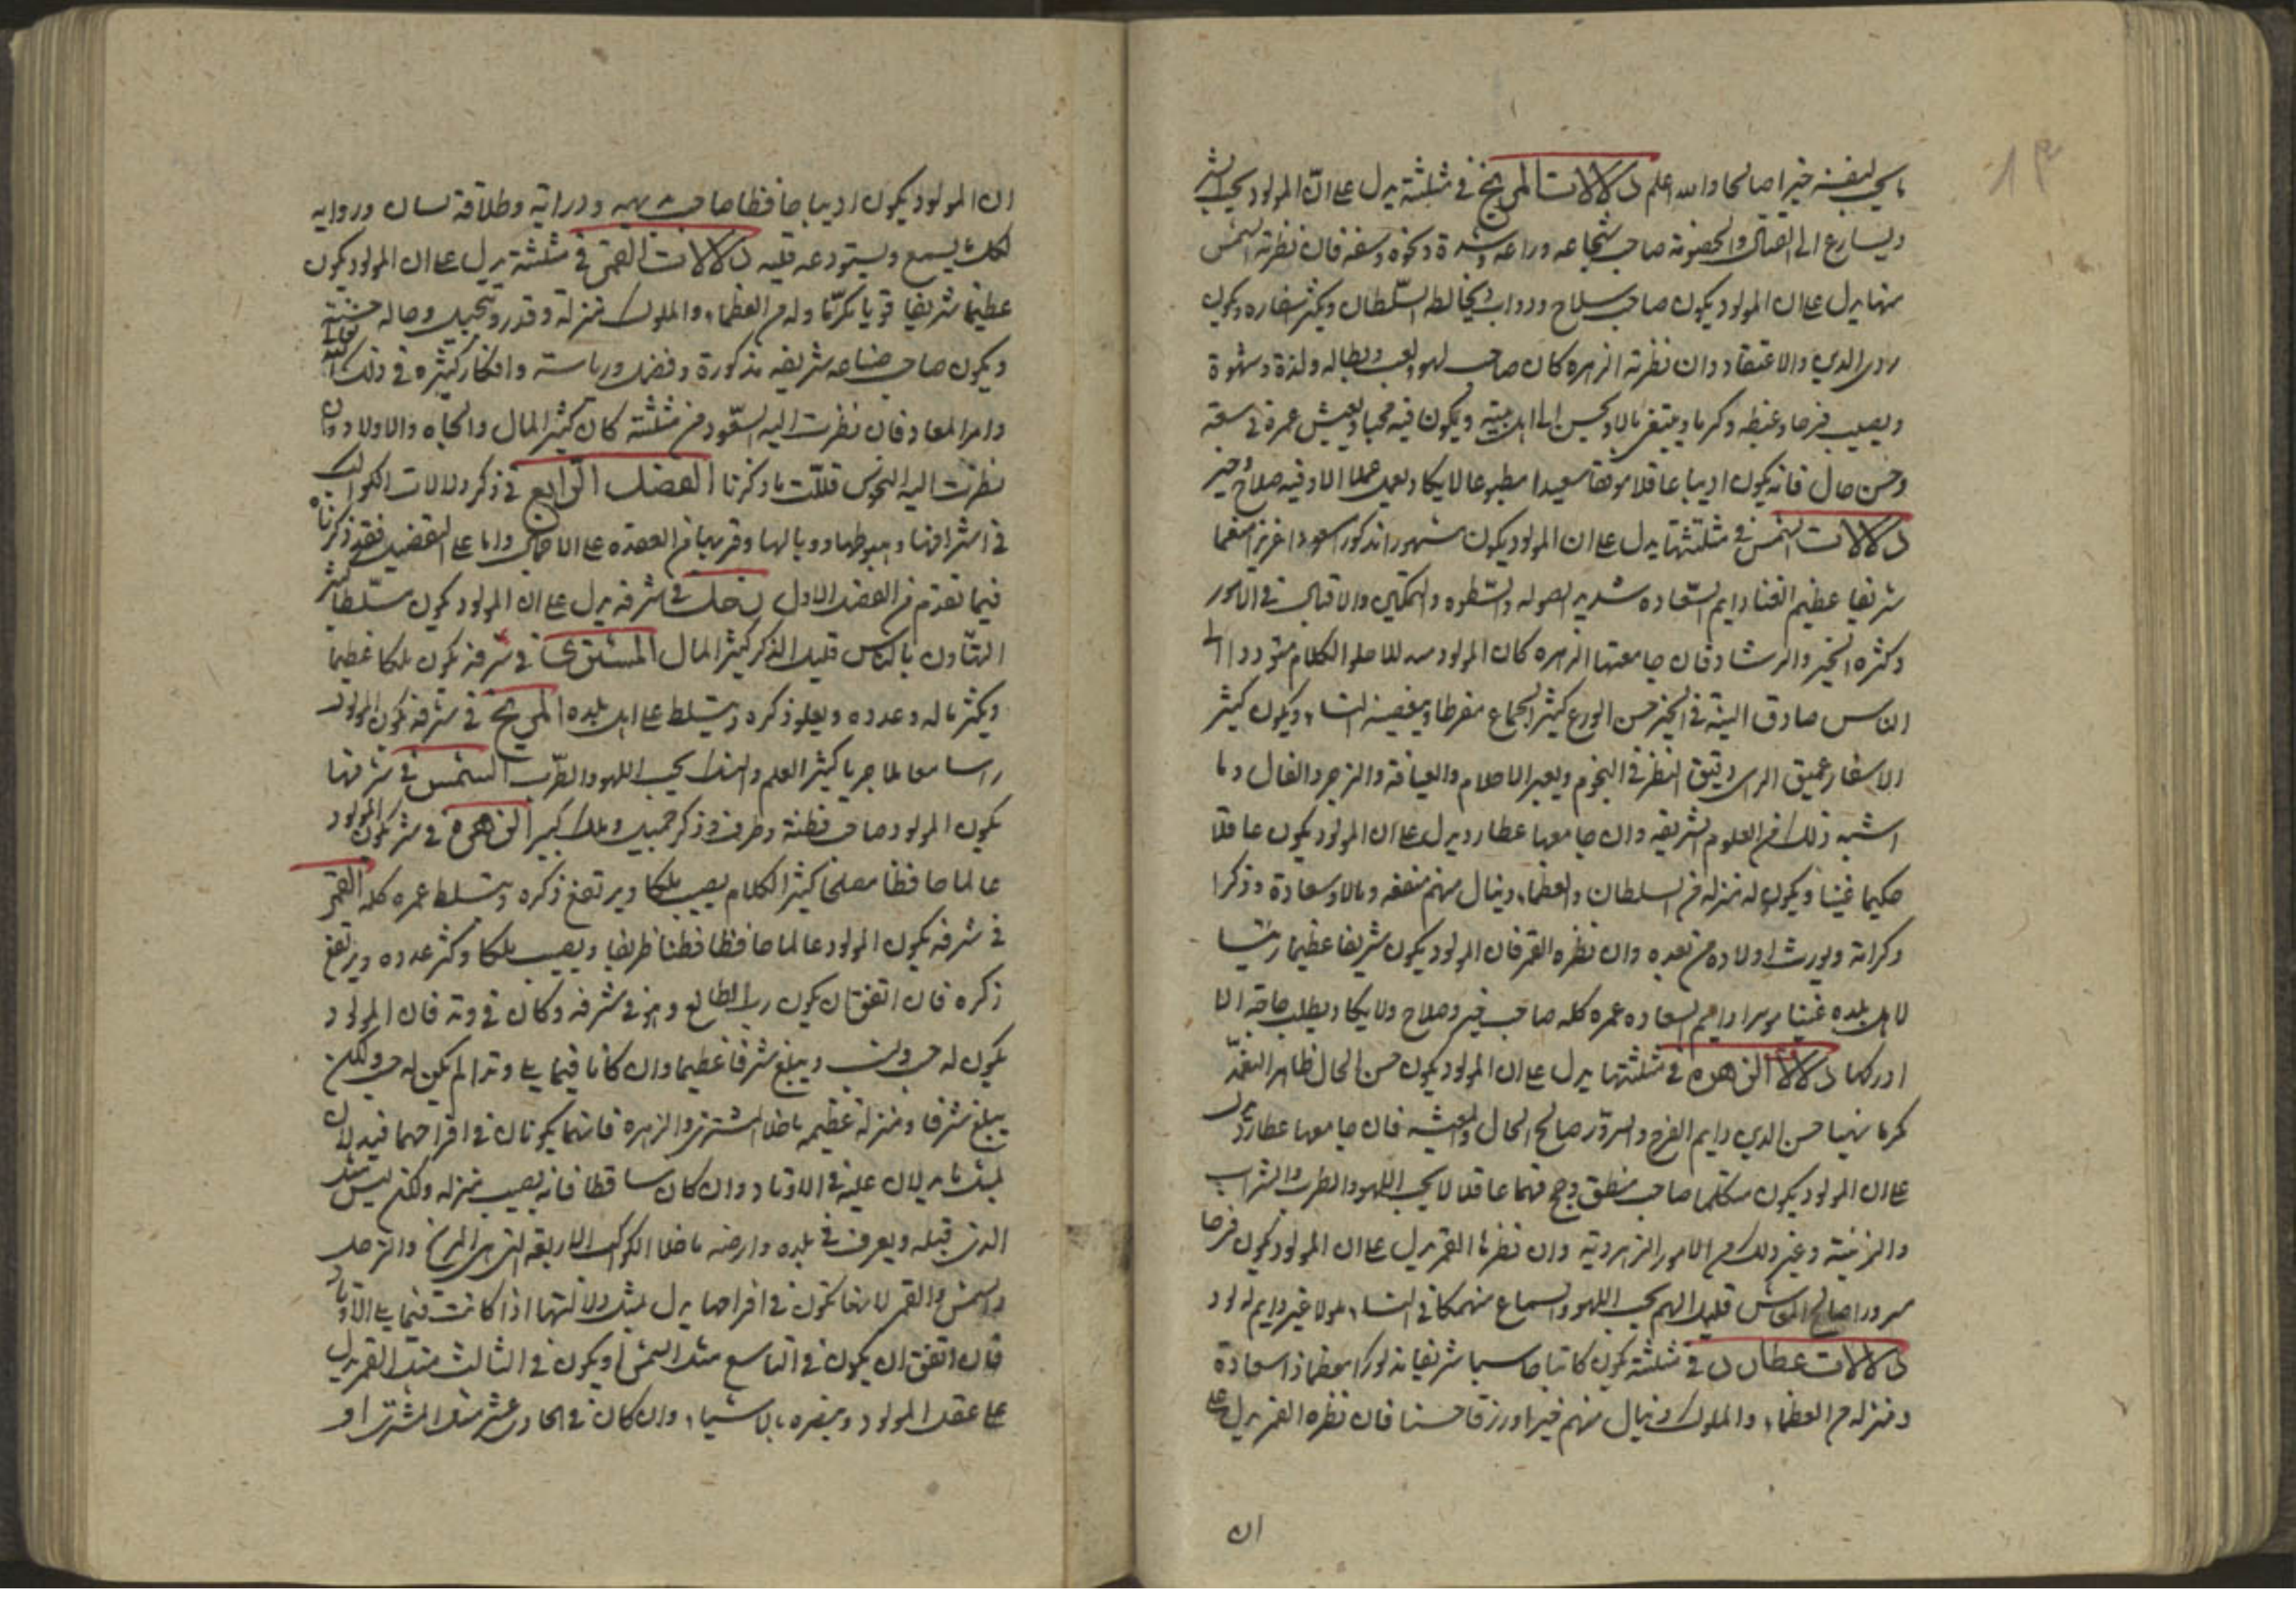 ما يحب لنفسه خيرا صالحا والله اعلم دلالات المريخ في مثلثته يدل على ان المولود يحب الشر
ويسارع الى القتال والخصومة صاحب شجاعه وشدة ونخوة وسفه فان نظرته الشمس
منها يدل على ان المولود يكون صاحب سلاح ودواب ويخالط السلطان ويكثر اسفاره ويكون
ردى الدين والاعتقاد وان نظرته الزهره كان صاحب لهو ولعب وبطاله ولذة وشهوة
ويصيب فرحا وغبطه وكرما وينفق مالا ويحسن الى اهل بيته ويكون فيه محبا ويعيش عمره في سعة
وحسن حال فانه يكون اديبا عاقلا موفقا سعيدا مطبوعا لا يكاد يعمل عملا الا وفيه صلاح وخير
دلالات الشمس في مثلثتها يدل على ان المولود يكون مشهورا مذكورا سعيدا عزيزا منعما
شريفا عظيم الغنا دايم السعاده شديد الصوله والسطوه والتمكين والاقبال في الامور
وكثره الخير والرشاد فان جامعتها الزهره كان المولود حلو الكلام متوددا الى
الناس صادق النية في الخير حسن الورع كثير الجماع مفرطا ويبغضه النساء ويكون كثير
الاسفار عميق الراى دقيق النظر في النجوم ويعبر الاحلام والعيافة والزجر والفال وما
اشبه ذلك من العلوم الشريفه وان جامعها عطارد يدل على ان المولود يكون عاقلا
حكيما غنيا ويكون له منزله من السلطان والعظماء وينال منهم منفعه ومالا وسعادة وذكرا
وكرامة ويورث اولاده من بعده وان نظره القمر فان المولود يكون شريفا عظيما رئيسا
لاهل بلده غنيا موسرا دايم السعاده عمره كله صاحب خير وصلاح ولا يكاد يطلب حاجة الا
ادركها دلالات الزهره في مثلثتها يدل على ان المولود يكون حسن الحال ظاهر النعمة
كريما بهيا حسن الدين دايم الفرح والسرور صالح الحال والمعيشه فان جامعها عطارد يدل
على ان المولود يكون متكلما صاحب منطق وحجج فهما عاقلا لا يحب اللهو والطرب والشراب
والزينة وغير ذلك من الامور الزهروية وان نظرها القمر يدل على ان المولود يكون فرحا
مسرورا صالح المعاش قليل الهم يحب اللهو والسماع منهمكا في النساء ملولا غير دايم لود
دلالات عطارد في مثلثته يكون كاتبا حاسبا شريفا مذكورا معظما ذا سعادة
ومنزله من العظماء والملوك وينال منهم خيرا ورزقا حسنا فان نظره القمر يدل على
ان
ان المولود يكون اديبا حافظا صاحب ودراية وطلاقة لسان ورواية
لكل ما يسمع ويستودعه قلبه دلالات القمر في مثلثته يدل على ان المولود يكون
عظيما شريفا قويا مكرما وله من العظماء والملوك منزلة وقدر وتبجيل وحاله حسنة
ويكون صاحب صناعه شريفه مذكورة وفضل ورياسة وافكار كثيره في ذلك الله تعالى
وامر المعاد فان نظرت اليه السعود من مثلثته كان كثير المال والجاه والاولاد وان
نظرت اليه النحوس قللت ما ذكرنا الفصل الرابع في ذكر دلالات الكواكب
في اشرافها وهبوطها ووبالها وقربها من العقده على الاجمال واما على التفصيل فقد ذكرناه
فيما تقدم من الفصل الاول زحل في شرفه يدل على ان المولود يكون متسلطا كثير
التهاون بالناس قليل الذكر كثير المال المشترى في شرفه يكون ملكا عظيما
ويكثر ماله وعدده ويعلو ذكره ويتسلط على اهل بلده المريخ في شرفه يكون المولود
راسا معالجا جريا كثير العلم والهند يحب اللهو والطرب الشمس في شرفها
يكون المولود صاحب فطنة وظرف وذكر جميل وملك كبير الزهره في شرفها يكون المولود
عالما حافظا مصلحا كثير الكلام يصيب ملكا ويرتفع ذكره ويتسلط عمره كله القمر
في شرفه يكون المولود عالما حافظا فطنا ظريفا ويصيب ملكا وكثر عدده ويرتفع
ذكره فان اتفق ان يكون رب الطالع وهو في شرفه وكان في وتد فان المولود
يكون له حسب ونسب ويبلغ شرفا عظيما وان كانا فيما يلى وتدا لم يكن له حسب ولكن
يبلغ شرفا ومنزلة عظيمه ما خلا المشترى والزهره فانهما يكونان في افراحهما فيدلان
بمثل ما يدلان عليه في الاوتاد وان كان ساقطا فانه يصيب منزله ولكن ليس مثل
الذى قبله ويعرف في بلده وارضه ما خلا الكواكب الاربعه التى هى المريخ والزحل
والشمس والقمر لانها تكون في افراحها يدل بمثل دلالتها اذا كانت فيما يلى الاوتاد
فان اتفق ان يكون في التاسع مثل الشمس او يكون في الثالث مثل القمر يدل
على عقل المولود وبصره بالاشياء وان كان في الحادى عشر مثل المشترى او